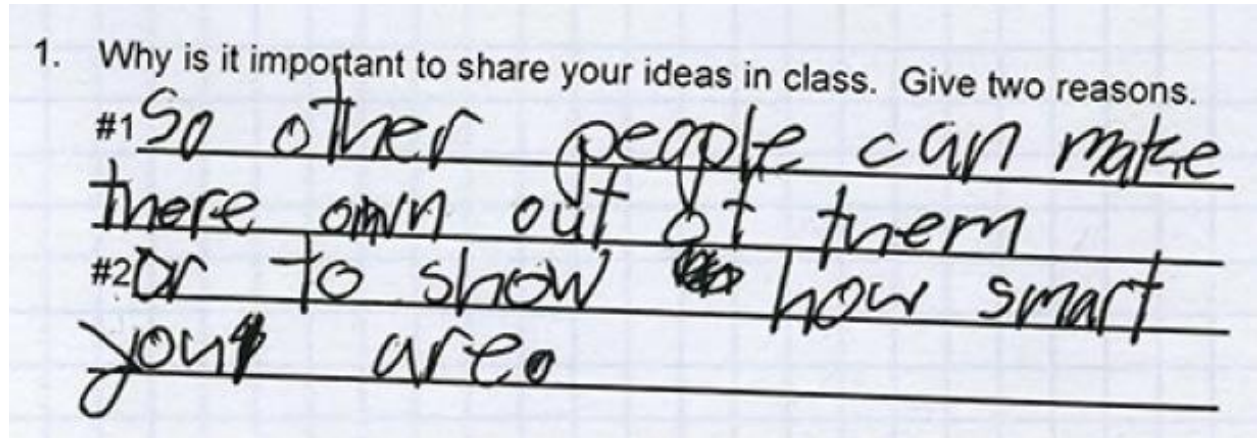 1. Why is it important to share your ideas in class. Give two reasons.
#1 So other people can make
there own out of them
#2 or to show how smart
you are.